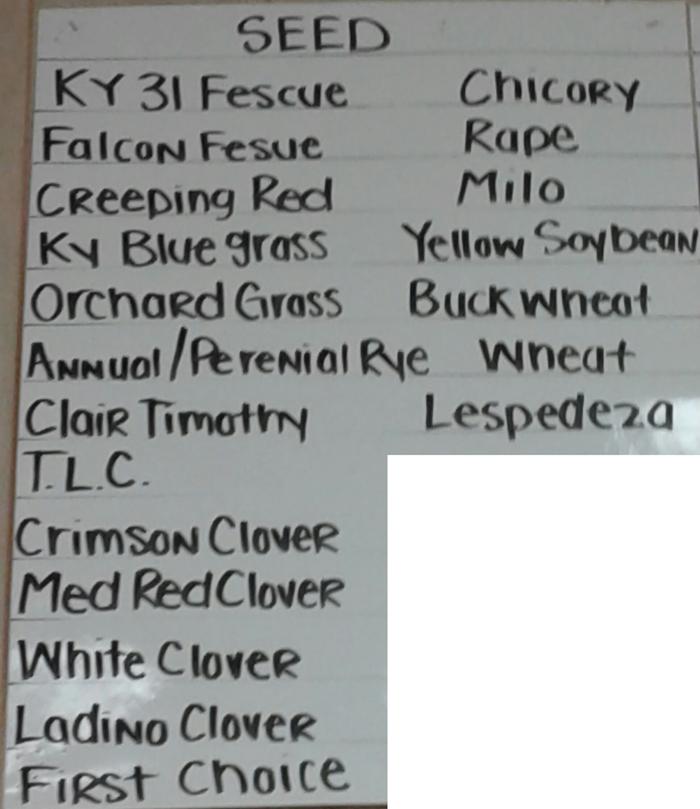 SEED
KY 31 Fescue Chicory
Falcon Fesue Rape
Creeping Red Milo
Ky Blue grass Yellow Soybean
Orchard Grass Buckwheat
Annual/Perenial Rye Wheat
Clair Timothy Lespedeza
T.L.C.
Crimson Clover
Med Red Clover
White Clover
Ladino Clover
First Choice